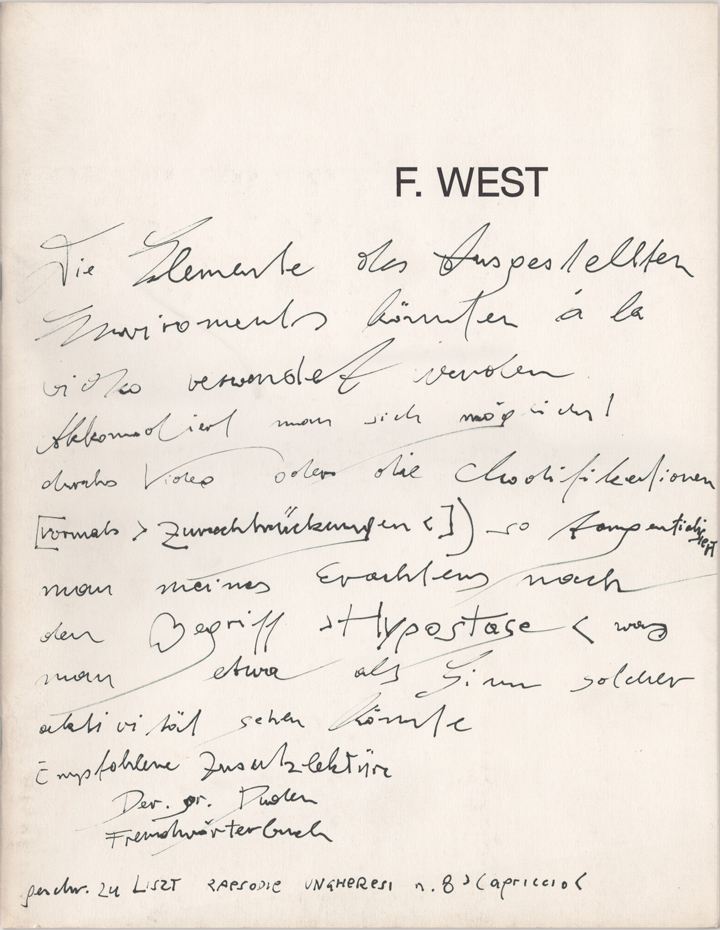 F. WEST
Die Elemente des Ausgestellten
Enviroments könnten á la
video verwendet werden
Akkomodiert man sich
durchs Video oder die Chodifikationen
[vormals > Zurechtrückungen <]) so tangentialisiert
man meines Erachtens nach
den Begriff >Hypostase < was
man etwa als Sinn solcher
aktivität sehen könnte
Empfohlene Zusatzlektüre
Der. gr. Duden
Fremdwörterbuch
geschr. zu LISZT RAPSODIE UNGHERESI n. 8 >Capriccio<